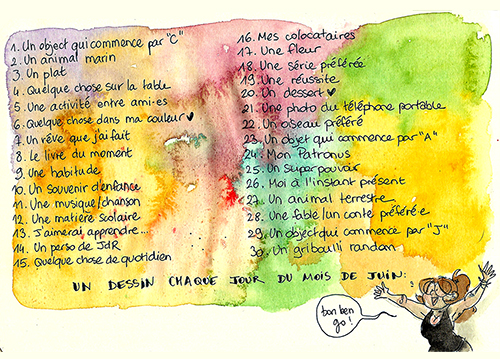 1. Un object qui commence par "C"
2. Un animal marin
3. Un plat
4. Quelque chose sur la table
5. Une activité entre ami·es
6. Quelque chose dans ma couleur ♥
7. Un rêve que j'ai fait
8. Le livre du moment
9. Une habitude
10. Un souvenir d'enfance
11. Une musique/chanson
12. Une matière scolaire
13. J'aimerai apprendre...
14. Un perso de JdR
15. Quelque chose de quotidien
16. Mes colocataires
17. Une fleur
18. Une série préférée
19. Une réussite
20. Un dessert ♥
21. Une photo du téléphone portable
22. Un oiseau préféré
23. Un objet qui commence par "A"
24. Mon Patronus
25. Un superpouvoir
26. Moi à l'instant présent
27. Un animal terrestre
28. Une fable/un conte préféré·e
29. Un object qui commence par "J"
30. Un gribouilli random
UN DESSIN CHAQUE JOUR DU MOIS DE JUIN:
bon ben
go!